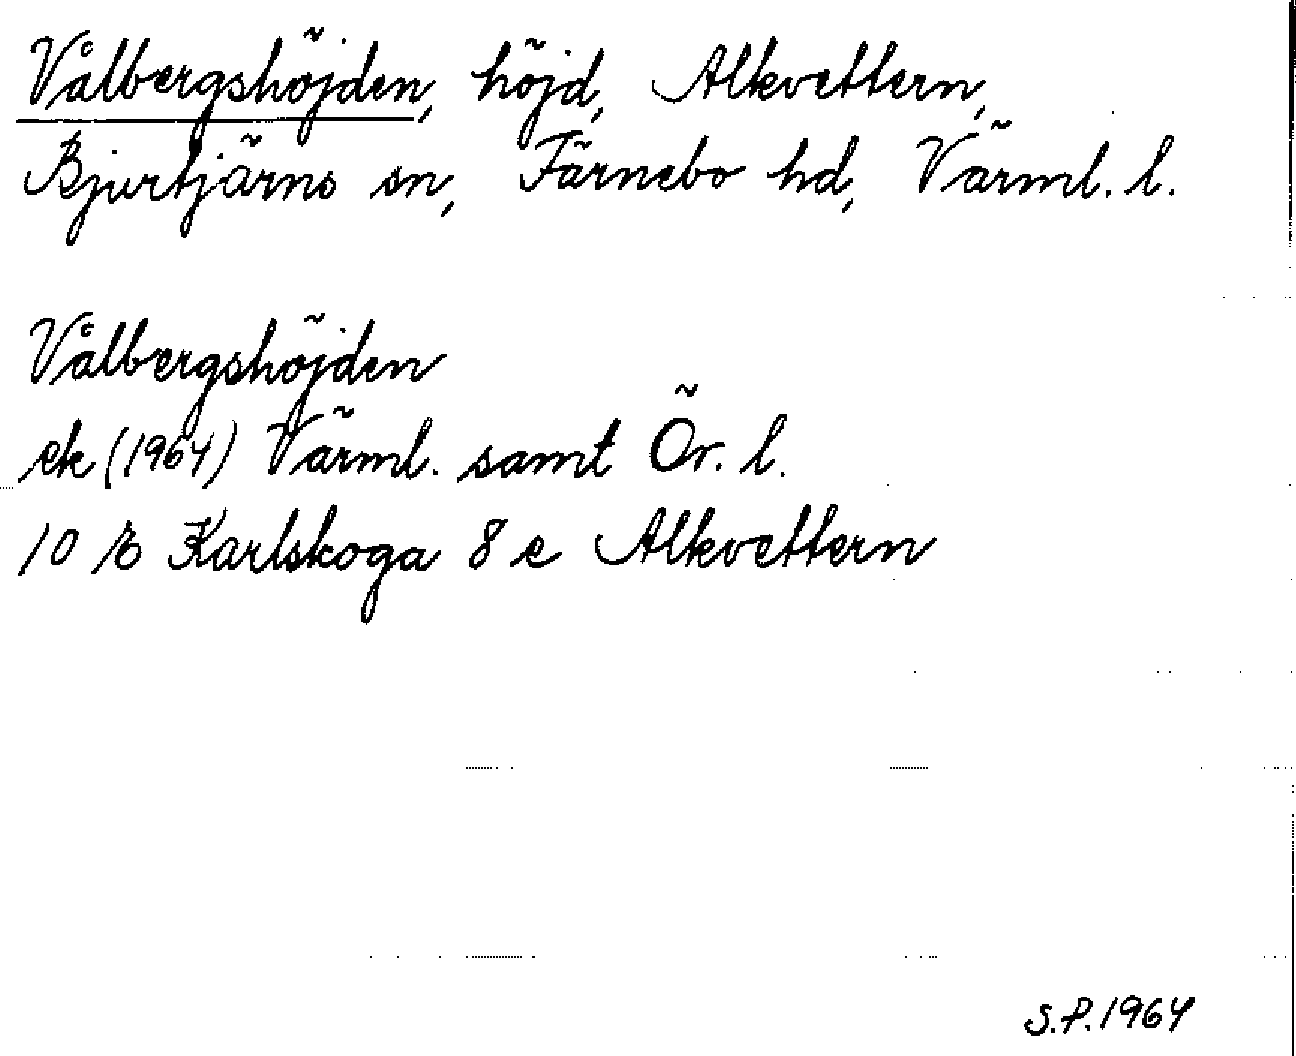 Vålbergshöjden, höjd, Alkvettern,
Bjurtjärns sn, Färnebo hd, Värml. l.
Vålbergshöjden
ek (1964) Värml. samt Ör. l.
10 E Karlskoga 8 e Alkvettern
S.P. 1964